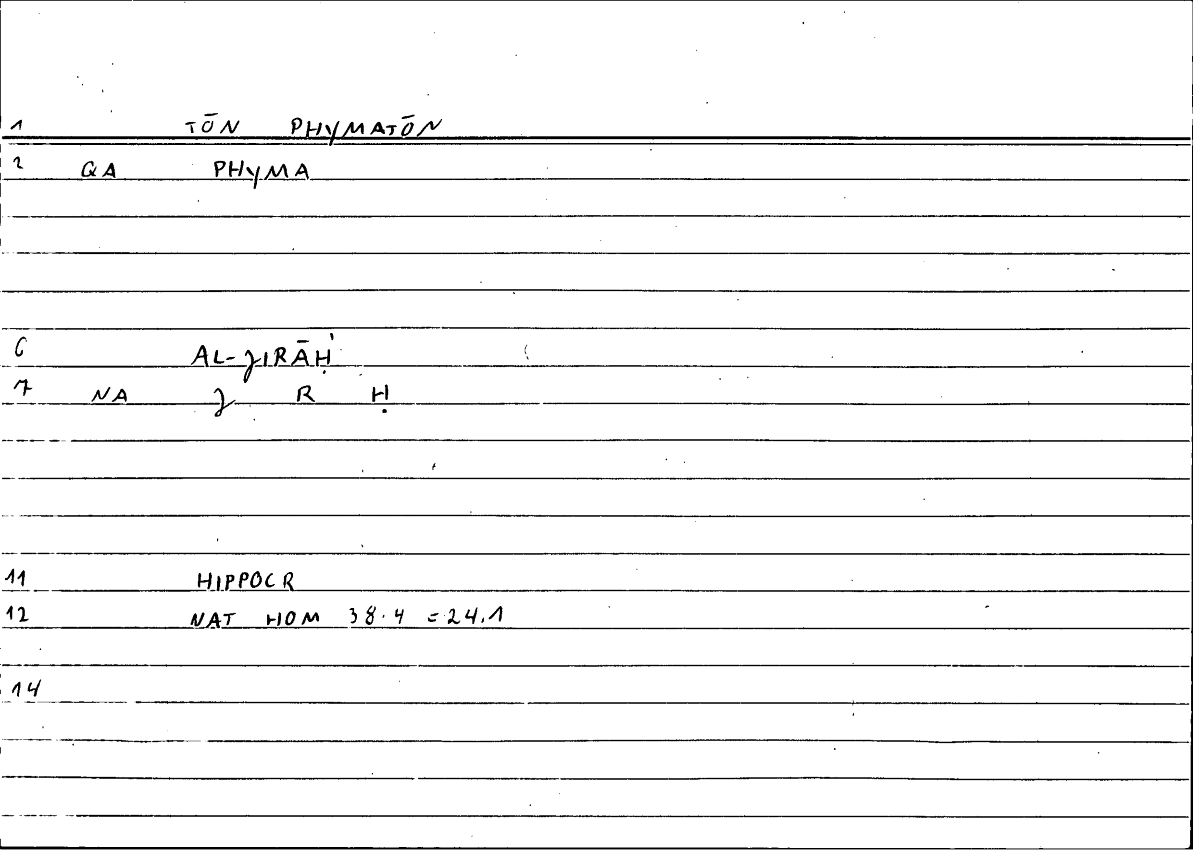 1 TŌN PHYMATŌN
2 QA PHYMA
6 AL-ƷIRĀḤ
7 NA Ʒ R Ḥ
11 HIPPOCR
12 NAT HOM 38.4 = 24.1
14